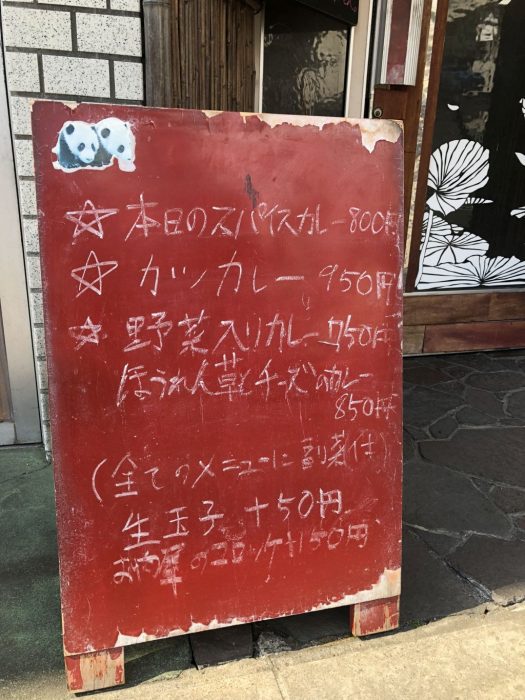 ☆本日のスパイスカレー800円
☆カツカレー950円
☆野菜入りカレー750円
ほうれん草とチーズのカレー
850円
(全てのメニューに副菜付)
生玉子 +50円
コロッケ+150円